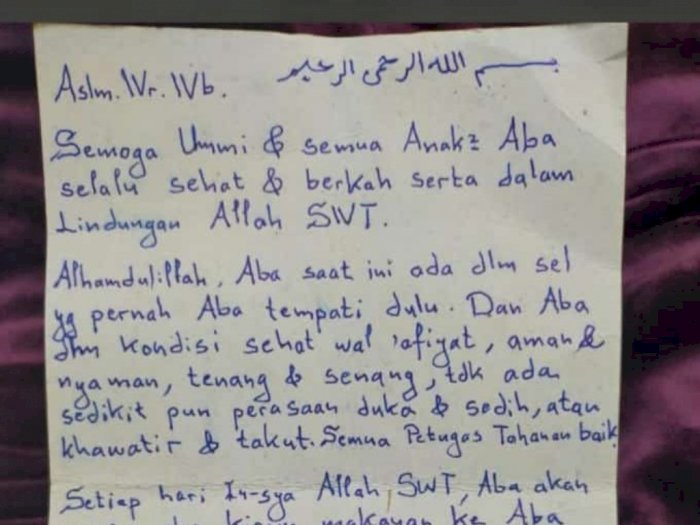 Aslm. Wr. Wb. بسم الله الرحمن الرحيم
Semoga Ummi & semua Anak2 Aba
selalu sehat & berkah serta dalam
Lindungan Allah SWT.
Alhamdulillah, Aba saat ini ada dlm sel
yg pernah Aba tempati dulu. Dan Aba
dlm kondisi sehat wal 'afiyat, aman &
nyaman, tenang & senang, tdk ada
sedikit pun perasaan duka & sedih, atau
khawatir & takut. Semua Petugas Tahanan baik
Setiap hari In-sya Allah SWT, Aba akan
makanan ke Aba